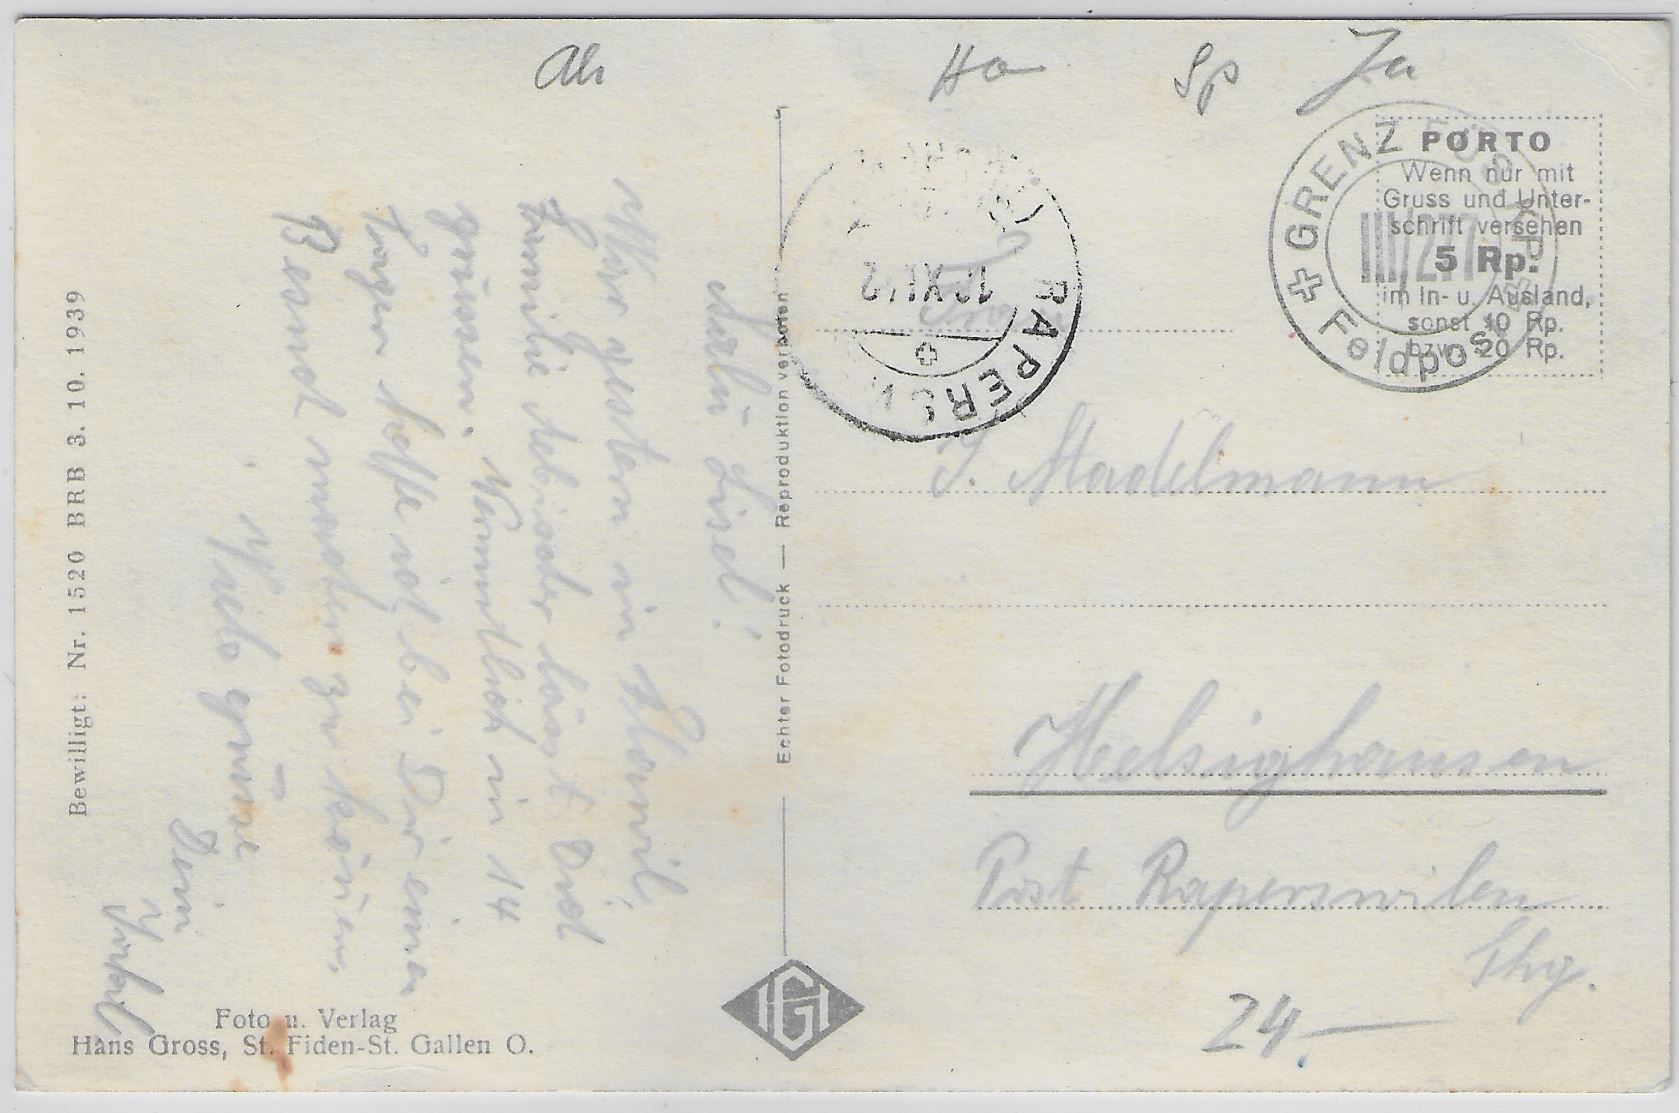 Ah
Ha
Sp
Ja
PORTO
Wenn nur mit
Gruss und Unter-
schrift versehen
5 Rp.
im In- u. Ausland,
sonst 10 Rp.
bzw. 20 Rp.
GRENZ FÜS
III/277
Feldpost
RAPERSW
XI 42
Salü Lisel!
War gestern in
Familie läst Dich
grüssen. Vermutlich in 14
tagen hoffe ich bei Dir einen
Besuch machen zu können.
Viele grüsse
Dein
Echter Fotodruck — Reproduktion verboten
Bewilligt: Nr. 1520 BRB 3. 10. 1939
Foto u. Verlag
Hans Gross, St. Fiden-St. Gallen O.
IGI
J. Stadelmann
Helsighausen
Post Raperswilen
Thg.
24.—